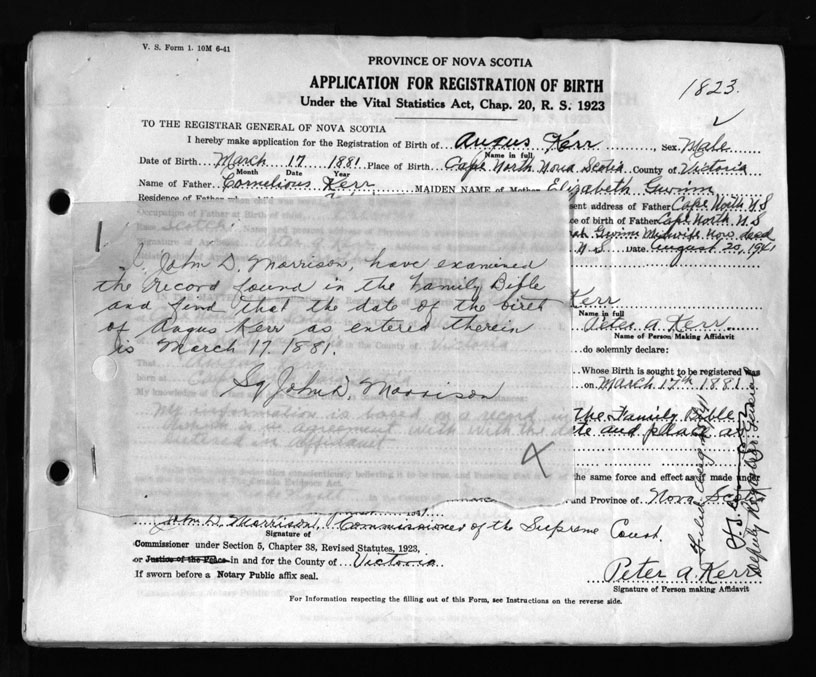 V. S. Form 1. 10M 6-41
PROVINCE OF NOVA SCOTIA
APPLICATION FOR REGISTRATION OF BIRTH
Under the Vital Statistics Act, Chap. 20, R. S. 1923
1823
TO THE REGISTRAR GENERAL OF NOVA SCOTIA
I hereby make application for the Registration of Birth of Angus Kerr Sex Male
Name in full
Date of Birth March 17 1881 Place of Birth Cape North Nova Scotia County of Victoria
Month Date Year
Name of Father Cornelious Kerr MAIDEN NAME of Mother Elizabeth Gwinn
Residence of Father when child was
ent address of Father Cape North N.S
Occupation of Father at Birth of child
ce of birth of Father Cape North N.S
Gwinn Midwife now dead
N S Date August 20, 1941
I, John D. Morrison, have examined
the record found in the Family Bible
and find that the date of the birth
of Angus Kerr as entered therein
is March 17. 1881.
Sg John D. Morrison
Kerr
Name in full
Peter A. Kerr
Name of Person Making Affidavit
do solemnly declare:
in the County of Victoria
Whose Birth is sought to be registered was
on March 17th 1881
My information is based on a record in the Family Bible
which is in agreement with the date and place as
entered in affidavit
X
the same force and effect as if made under
and Province of Nova Sco
John D. Morrison, Commissioner of the Supreme Court.
Signature of
Commissioner under Section 5, Chapter 38, Revised Statutes, 1923,
or Justice of the Peace in and for the County of Victoria
If sworn before a Notary Public affix seal.
Peter A. Kerr
Signature of Person making Affidavit
For Information respecting the filling out of this Form, see Instructions on the reverse side.
Filed Aug
Deputy Registrar General